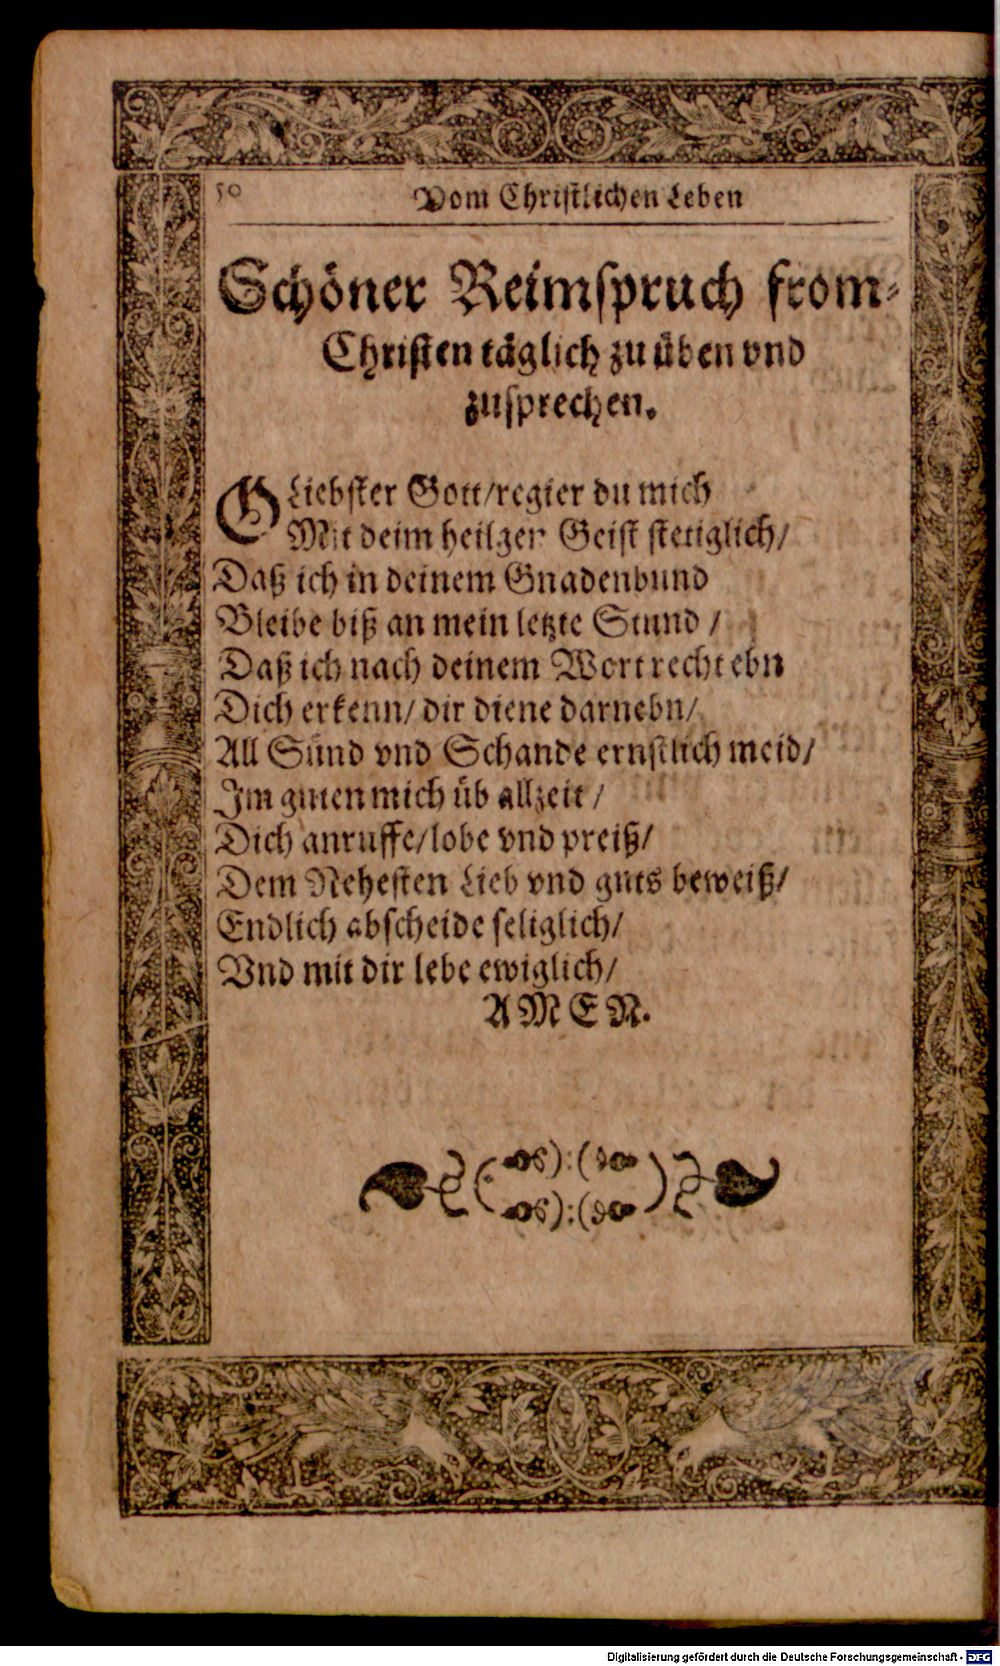 50
Vom Christlichen Leben
Schöner Reimspruch from-
Christen täglich zu üben vnd
zusprechen.
O Liebster Gott/regier du mich
Mit deim heilgen Geist stetiglich/
Daß ich in deinem Gnadenbund
Bleibe biß an mein letzte Stund /
Daß ich nach deinem Wort recht ebn
Dich erkenn/ dir diene darnebn/
All Sünd vnd Schande ernstlich meid/
Im guten mich üb allzeit /
Dich anruffe/lobe vnd preiß/
Dem Nehesten Lieb vnd guts beweiß/
Endlich abscheide seliglich/
Vnd mit dir lebe ewiglich/
AMEN.
Digitalisierung gefördert durch die Deutsche Forschungsgemeinschaft - DFG